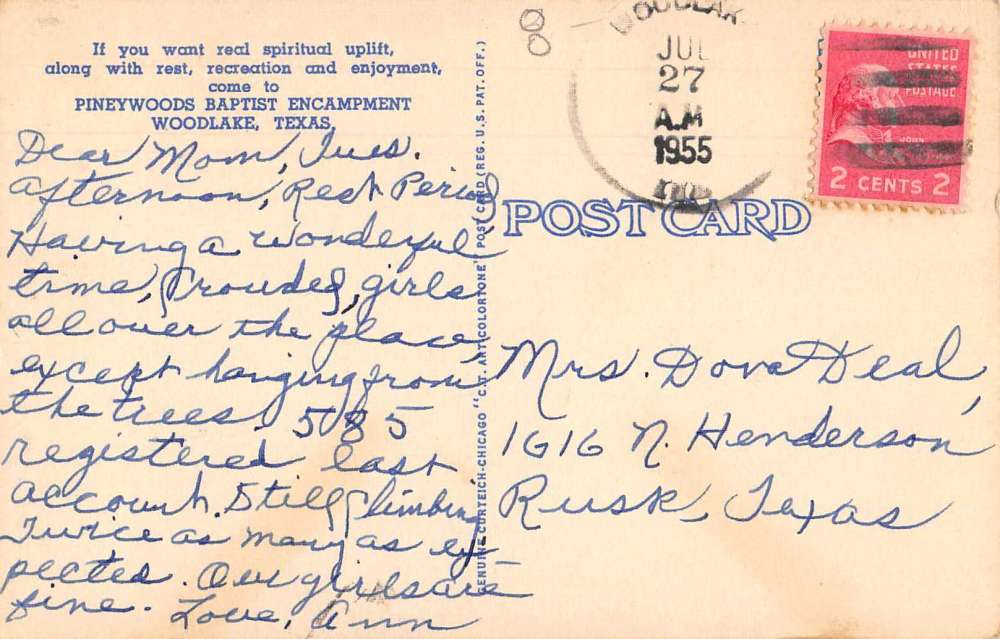 If you want real spiritual uplift,
along with rest, recreation and enjoyment,
come to
PINEYWOODS BAPTIST ENCAMPMENT
WOODLAKE, TEXAS.
Dear Mom, Tues.
afternoon, Rest Period
Having a wonderful
time, Crowded, girls
all over the place,
except hanging from
the trees. 585
registered last
account. Still climbing
Twice as many as ex-
pected. Our girls are
fine. Love, Ann
GENUINE CURTEICH-CHICAGO "C.T. ART-COLORTONE" POST CARD (REG. U.S. PAT. OFF.)
8
WOODLAKE
JUL
27
A.M
1955
UNITED
STATES
POSTAGE
JOHN
2 CENTS 2
POST CARD
Mrs. Dova Deal,
1616 N. Henderson
Rusk, Texas